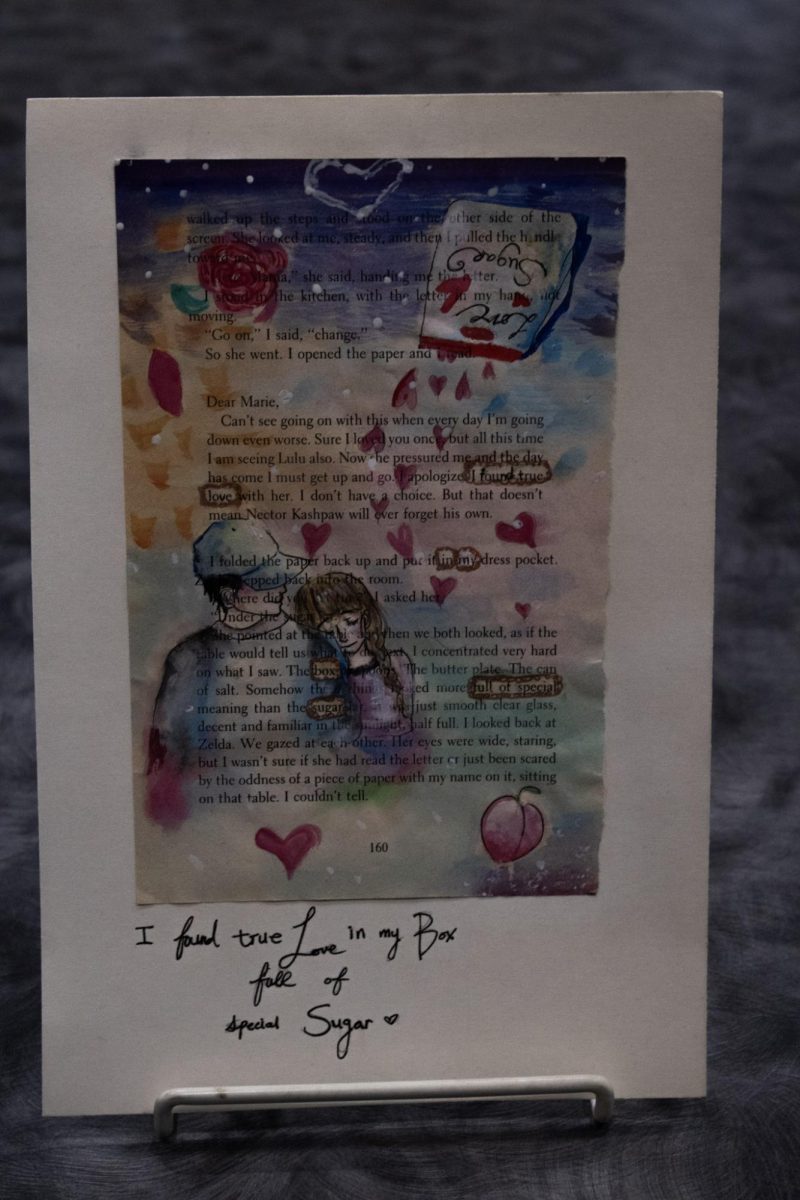 walked up the steps and stood on the other side of the
screen. She looked at me, steady, and then I pulled the handl
toward
Mama," she said, handing me the letter.
I stood in the kitchen, with the letter in my hand, not
moving.
"Go on," I said, "change."
So she went. I opened the paper and read.
Love
Sugar
Dear Marie,
Can't see going on with this when every day I'm going
down even worse. Sure I loved you once, but all this time
I am seeing Lulu also. Now she pressured me and the day
has come I must get up and go. I apologize. I found true
love with her. I don't have a choice. But that doesn't
mean Nector Kashpaw will ever forget his own.
I folded the paper back up and put it in my dress pocket.
Zelda stepped back into the room.
"Where did you find this?" I asked her.
"Under the sugar
She pointed at the table, and then we both looked, as if the
table would tell us what to do next. I concentrated very hard
on what I saw. The box of spoons. The butter plate. The can
of salt. Somehow these things looked more full of special
meaning than the sugar jar. It was just smooth clear glass,
decent and familiar in the sunlight, half full. I looked back at
Zelda. We gazed at each other. Her eyes were wide, staring,
but I wasn't sure if she had read the letter or just been scared
by the oddness of a piece of paper with my name on it, sitting
on that table. I couldn't tell.
160
I found true Love in my Box
full of
special Sugar